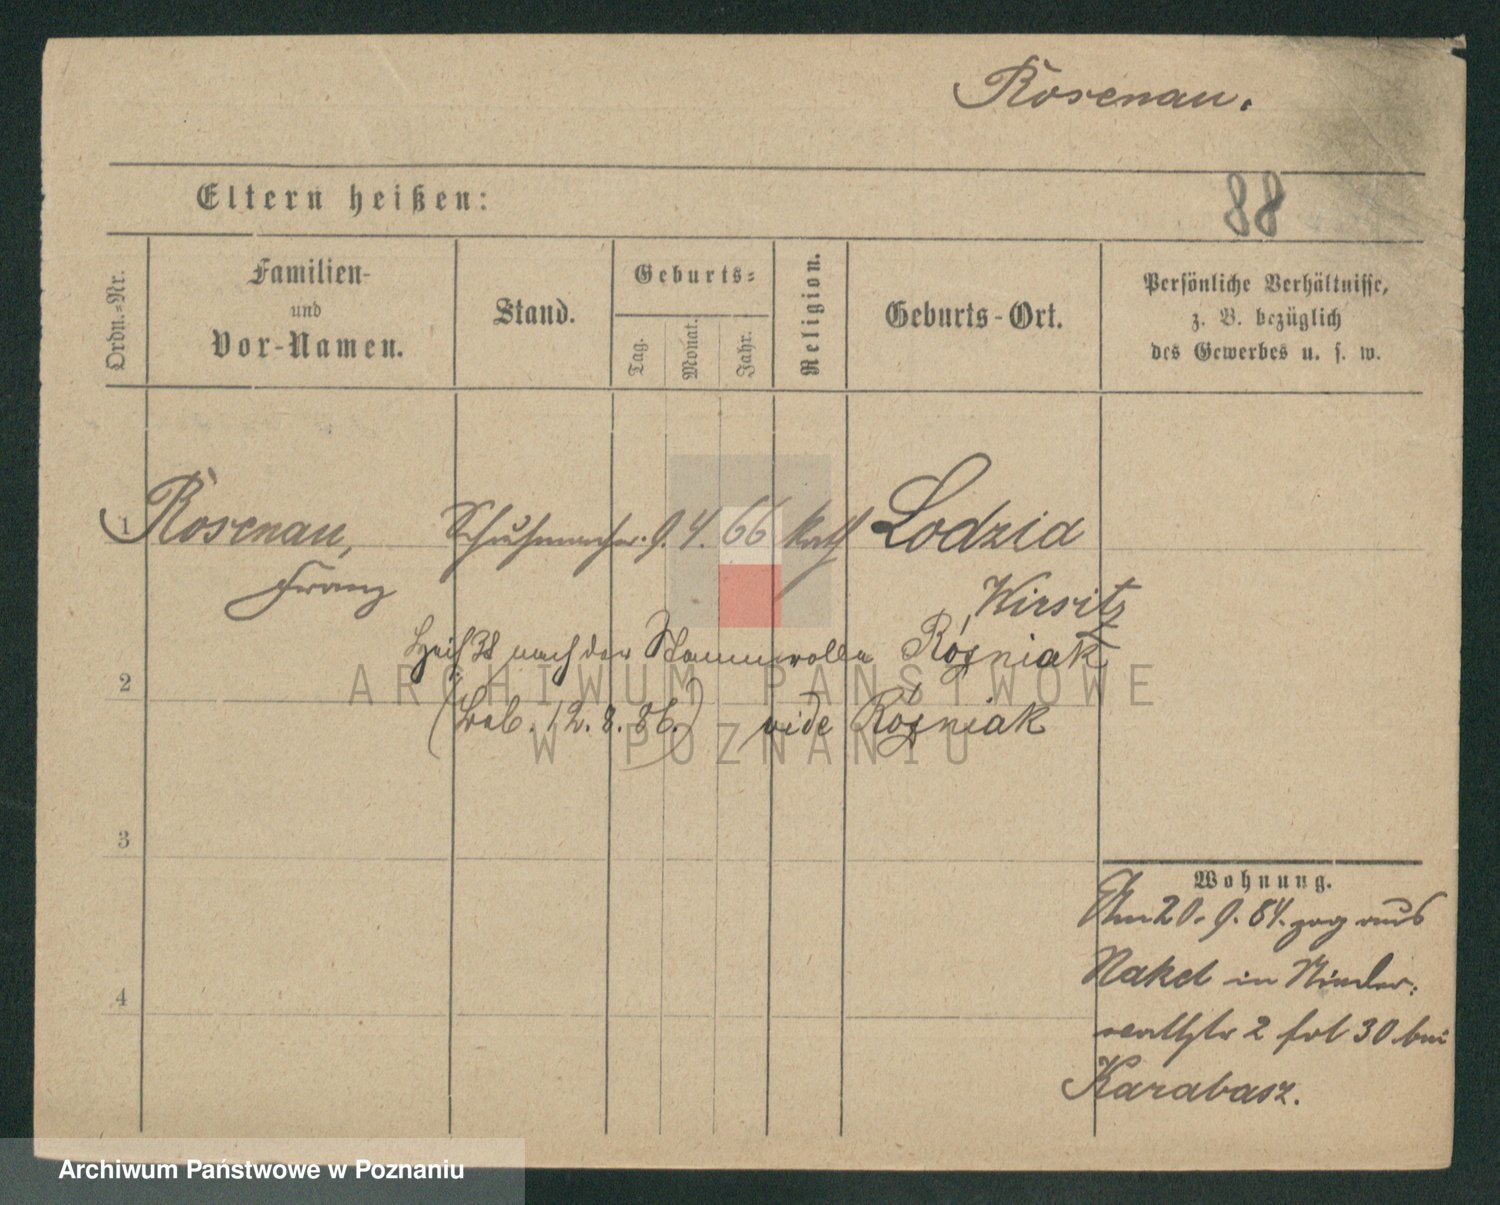 Rosenau.
Eltern heißen:
88
Ordn.-Nr.
Familien-
und
Vor-Namen.
Stand.
Geburts-
Tag.
Monat.
Jahr.
Religion.
Geburts-Ort.
Persönliche Verhältnisse,
z. B. bezüglich
des Gewerbes u. s. w.
1 Rosenau, Schuhmacher. 9. 4. 66 kath Lodzia
Franz
Wirsitz
heißt nach der Stammrolle Rózniak
2
(Bres. 12. 8. 86.) vide Rózniak
ARCHIWUM PAŃSTWOWE
W POZNANIU
3
Wohnung.
Am 20. 9. 84. zog aus
Nakel in
4
2 fol 30 bei
Karabasz.
Archiwum Państwowe w Poznaniu